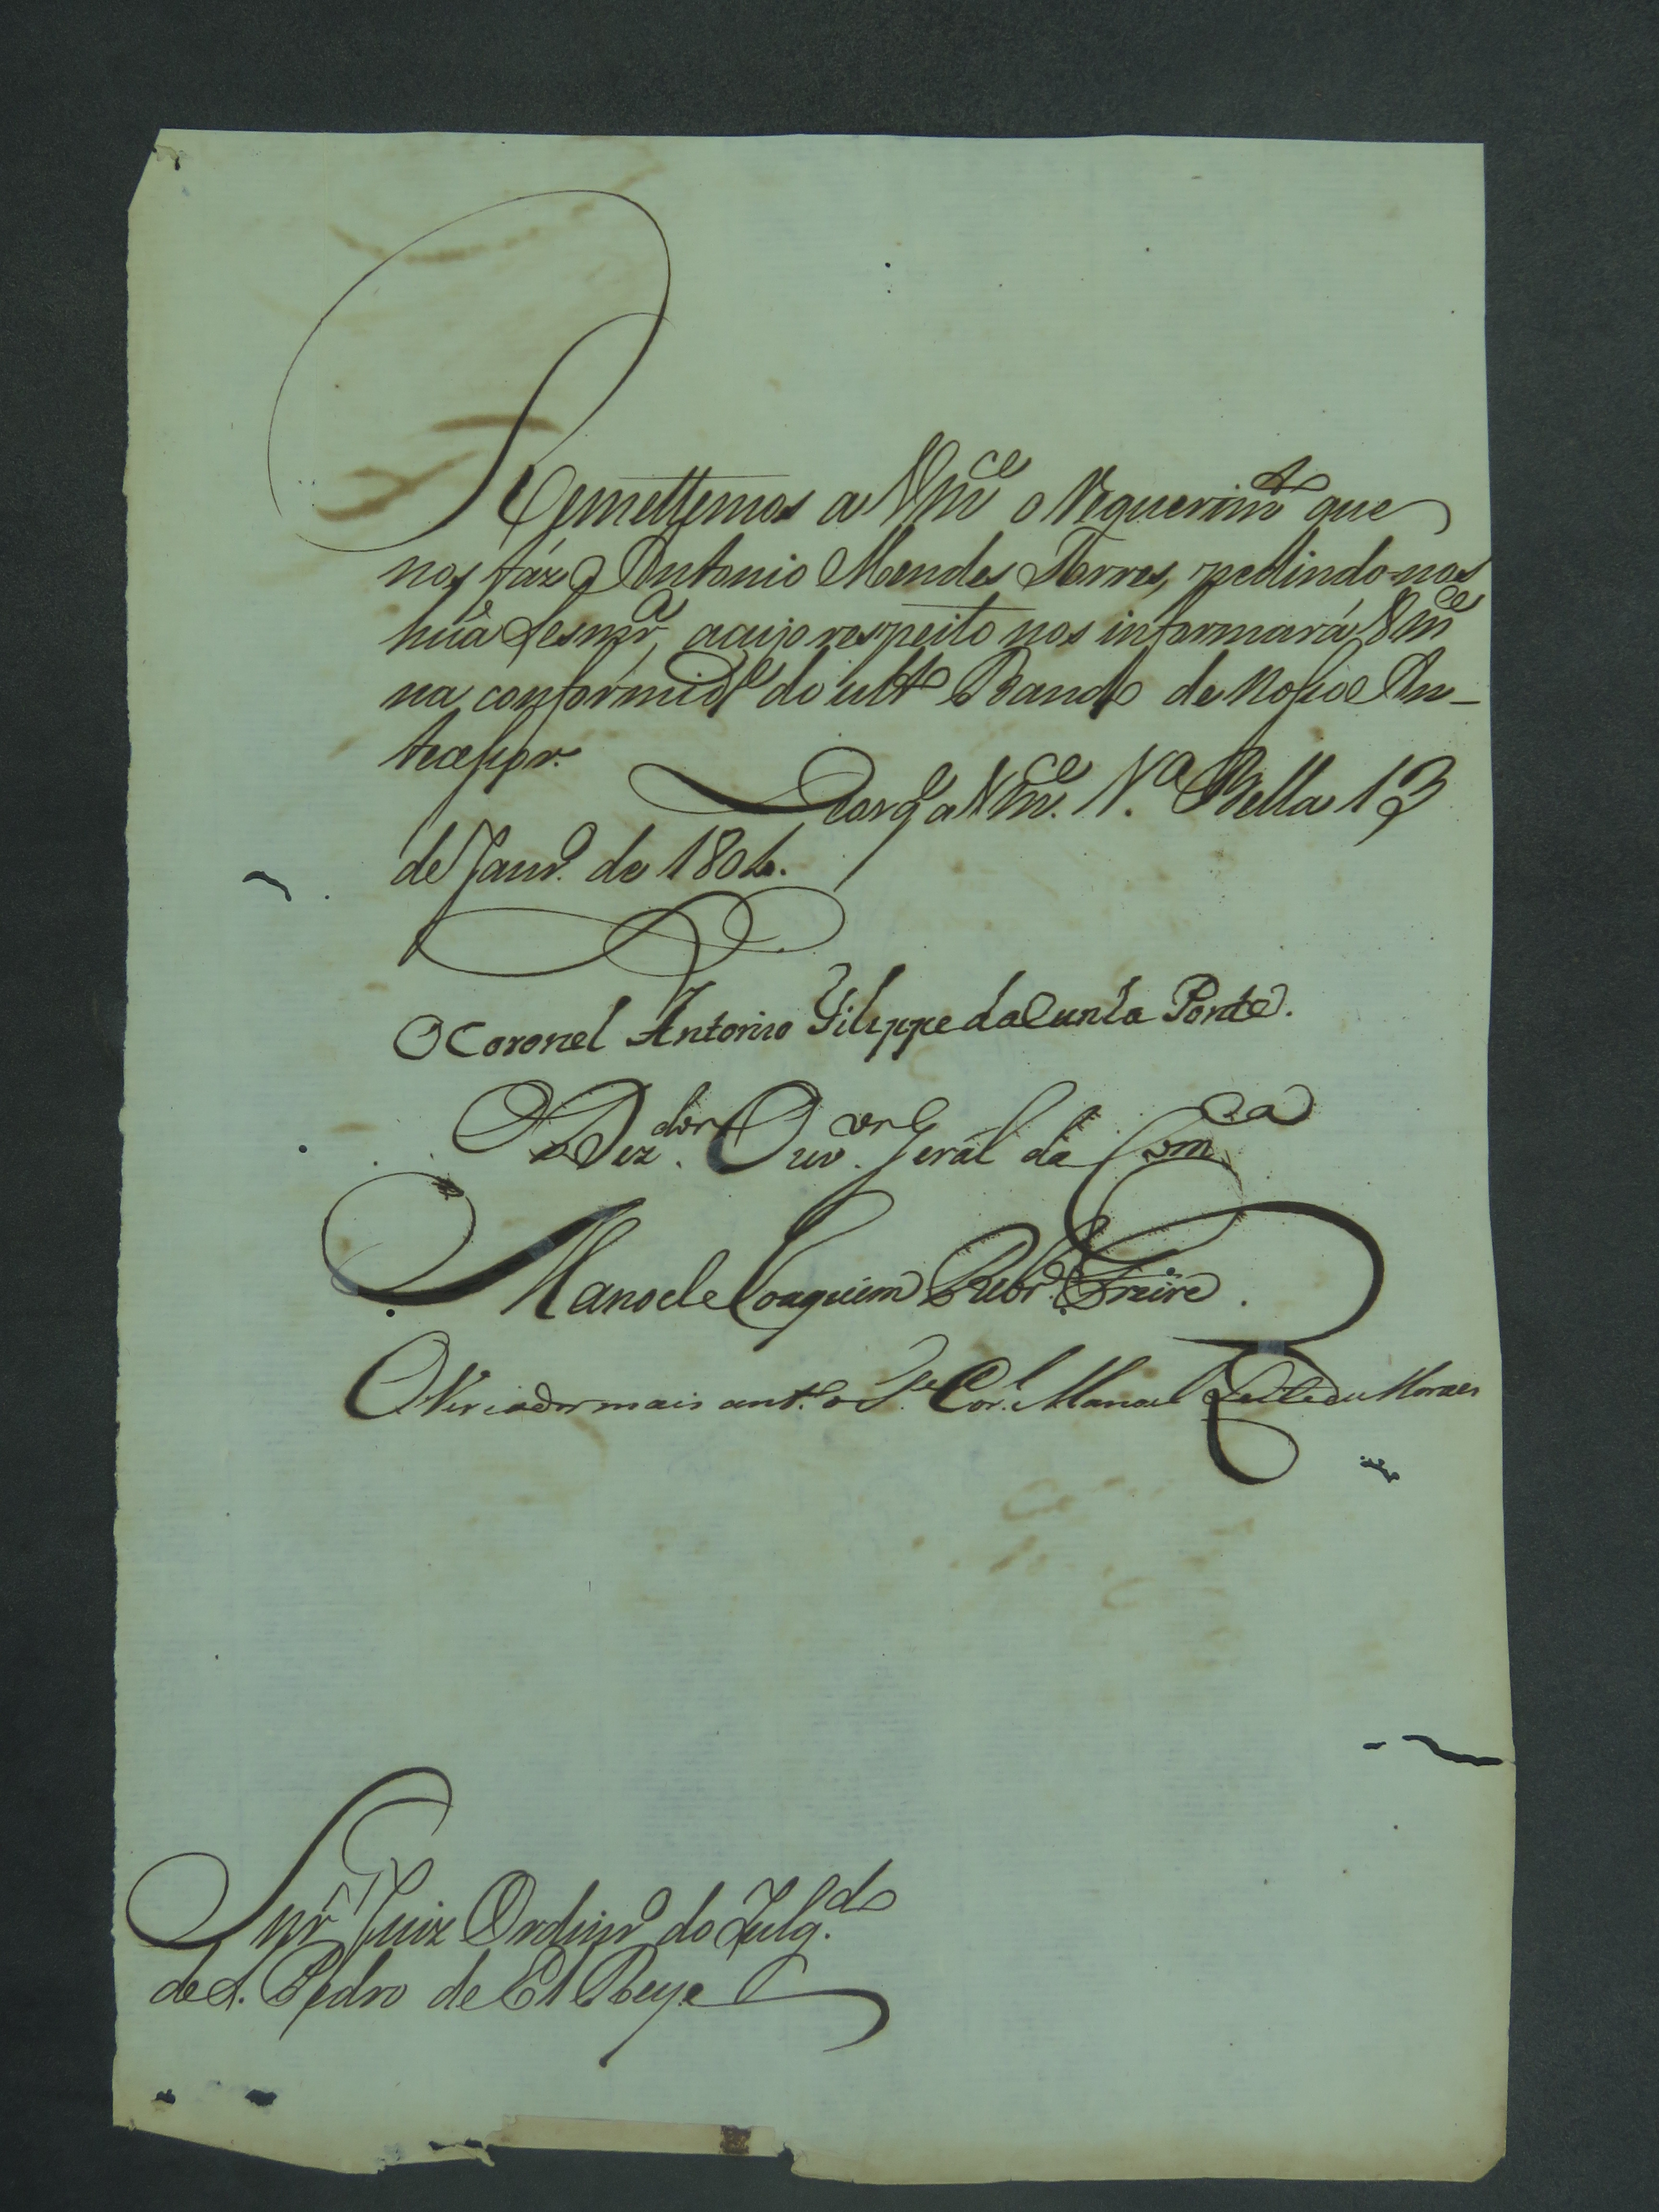 Remettemos a Vm.ce o Requerim.to que
nos fáz Antonio Mendes Torres, pedindo-nos
hũa Sesmr.a, acujo respeito nos informará Vm.ce
na conformid.e do ult.o Bando de nosso An-
tecessor.
D.s g.e a Vm.ce V.a Bella 13
de Janr.o de 1804.
O Coronel Antonio Filippe da Cunha Ponte.
O Dez.dor Ouv.or Geral da Com.ca
Manoel Joaquim Ribr.o Freire.
O Veriador mais ant.o o T.e Cor.el Manoel Leite de Moraes
Snr. Juiz Ordinr.o do Julg.do
de S. Pedro de El Rey